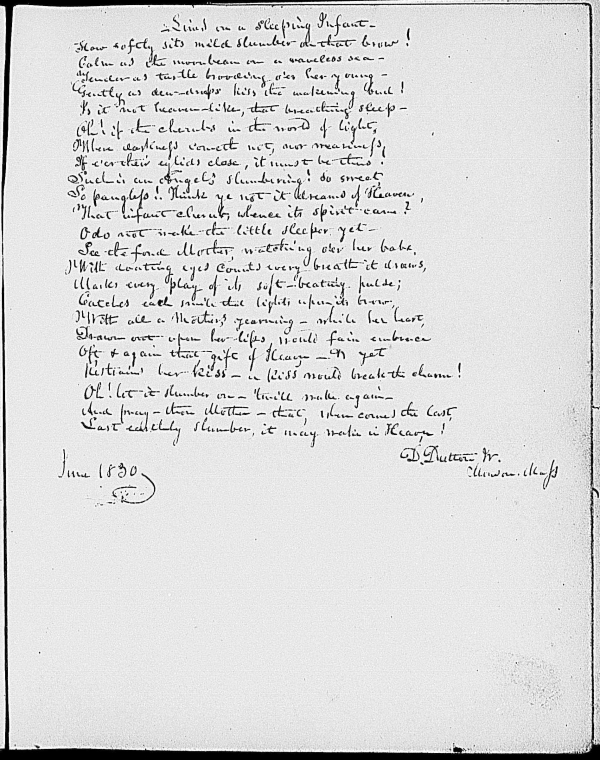 Lines on a Sleeping Infant -
How softly sits mild slumber on that brow!
Calm as the moonbeam on a waveless sea -
Tender as turtle brooding o'er her young -
Gently as dew-drops kiss the wakening bud!
Is it not heaven-like, that breathing sleep -
Oh! if the cherubs in the world of light,
Where darkness cometh not, nor weariness,
If e'er their eyelids close, it must be thus!
Such is an Angel's slumbering! so sweet
So pangless! Think ye not it dreams of Heaven,
That infant cherub, whence its spirit came?
O do not wake the little sleeper yet -
See the fond Mother, watching o'er her babe,
With doating eyes counts every breath it draws,
Marks every play of its soft-beating pulse;
Catches each smile that lights upon its brow,
With all a Mother's yearning - while her heart,
Drawn out upon her lips, would fain embrace
Oft & again that gift of Heaven - & yet
Restrains her kiss - a kiss would break the charm!
Oh! let it slumber on - 'twill wake again -
And pray - thou Mother - that, when comes the last,
Last earthly slumber, it may wake in Heaven!
D. Dutton Jr.
Mass
June 1830